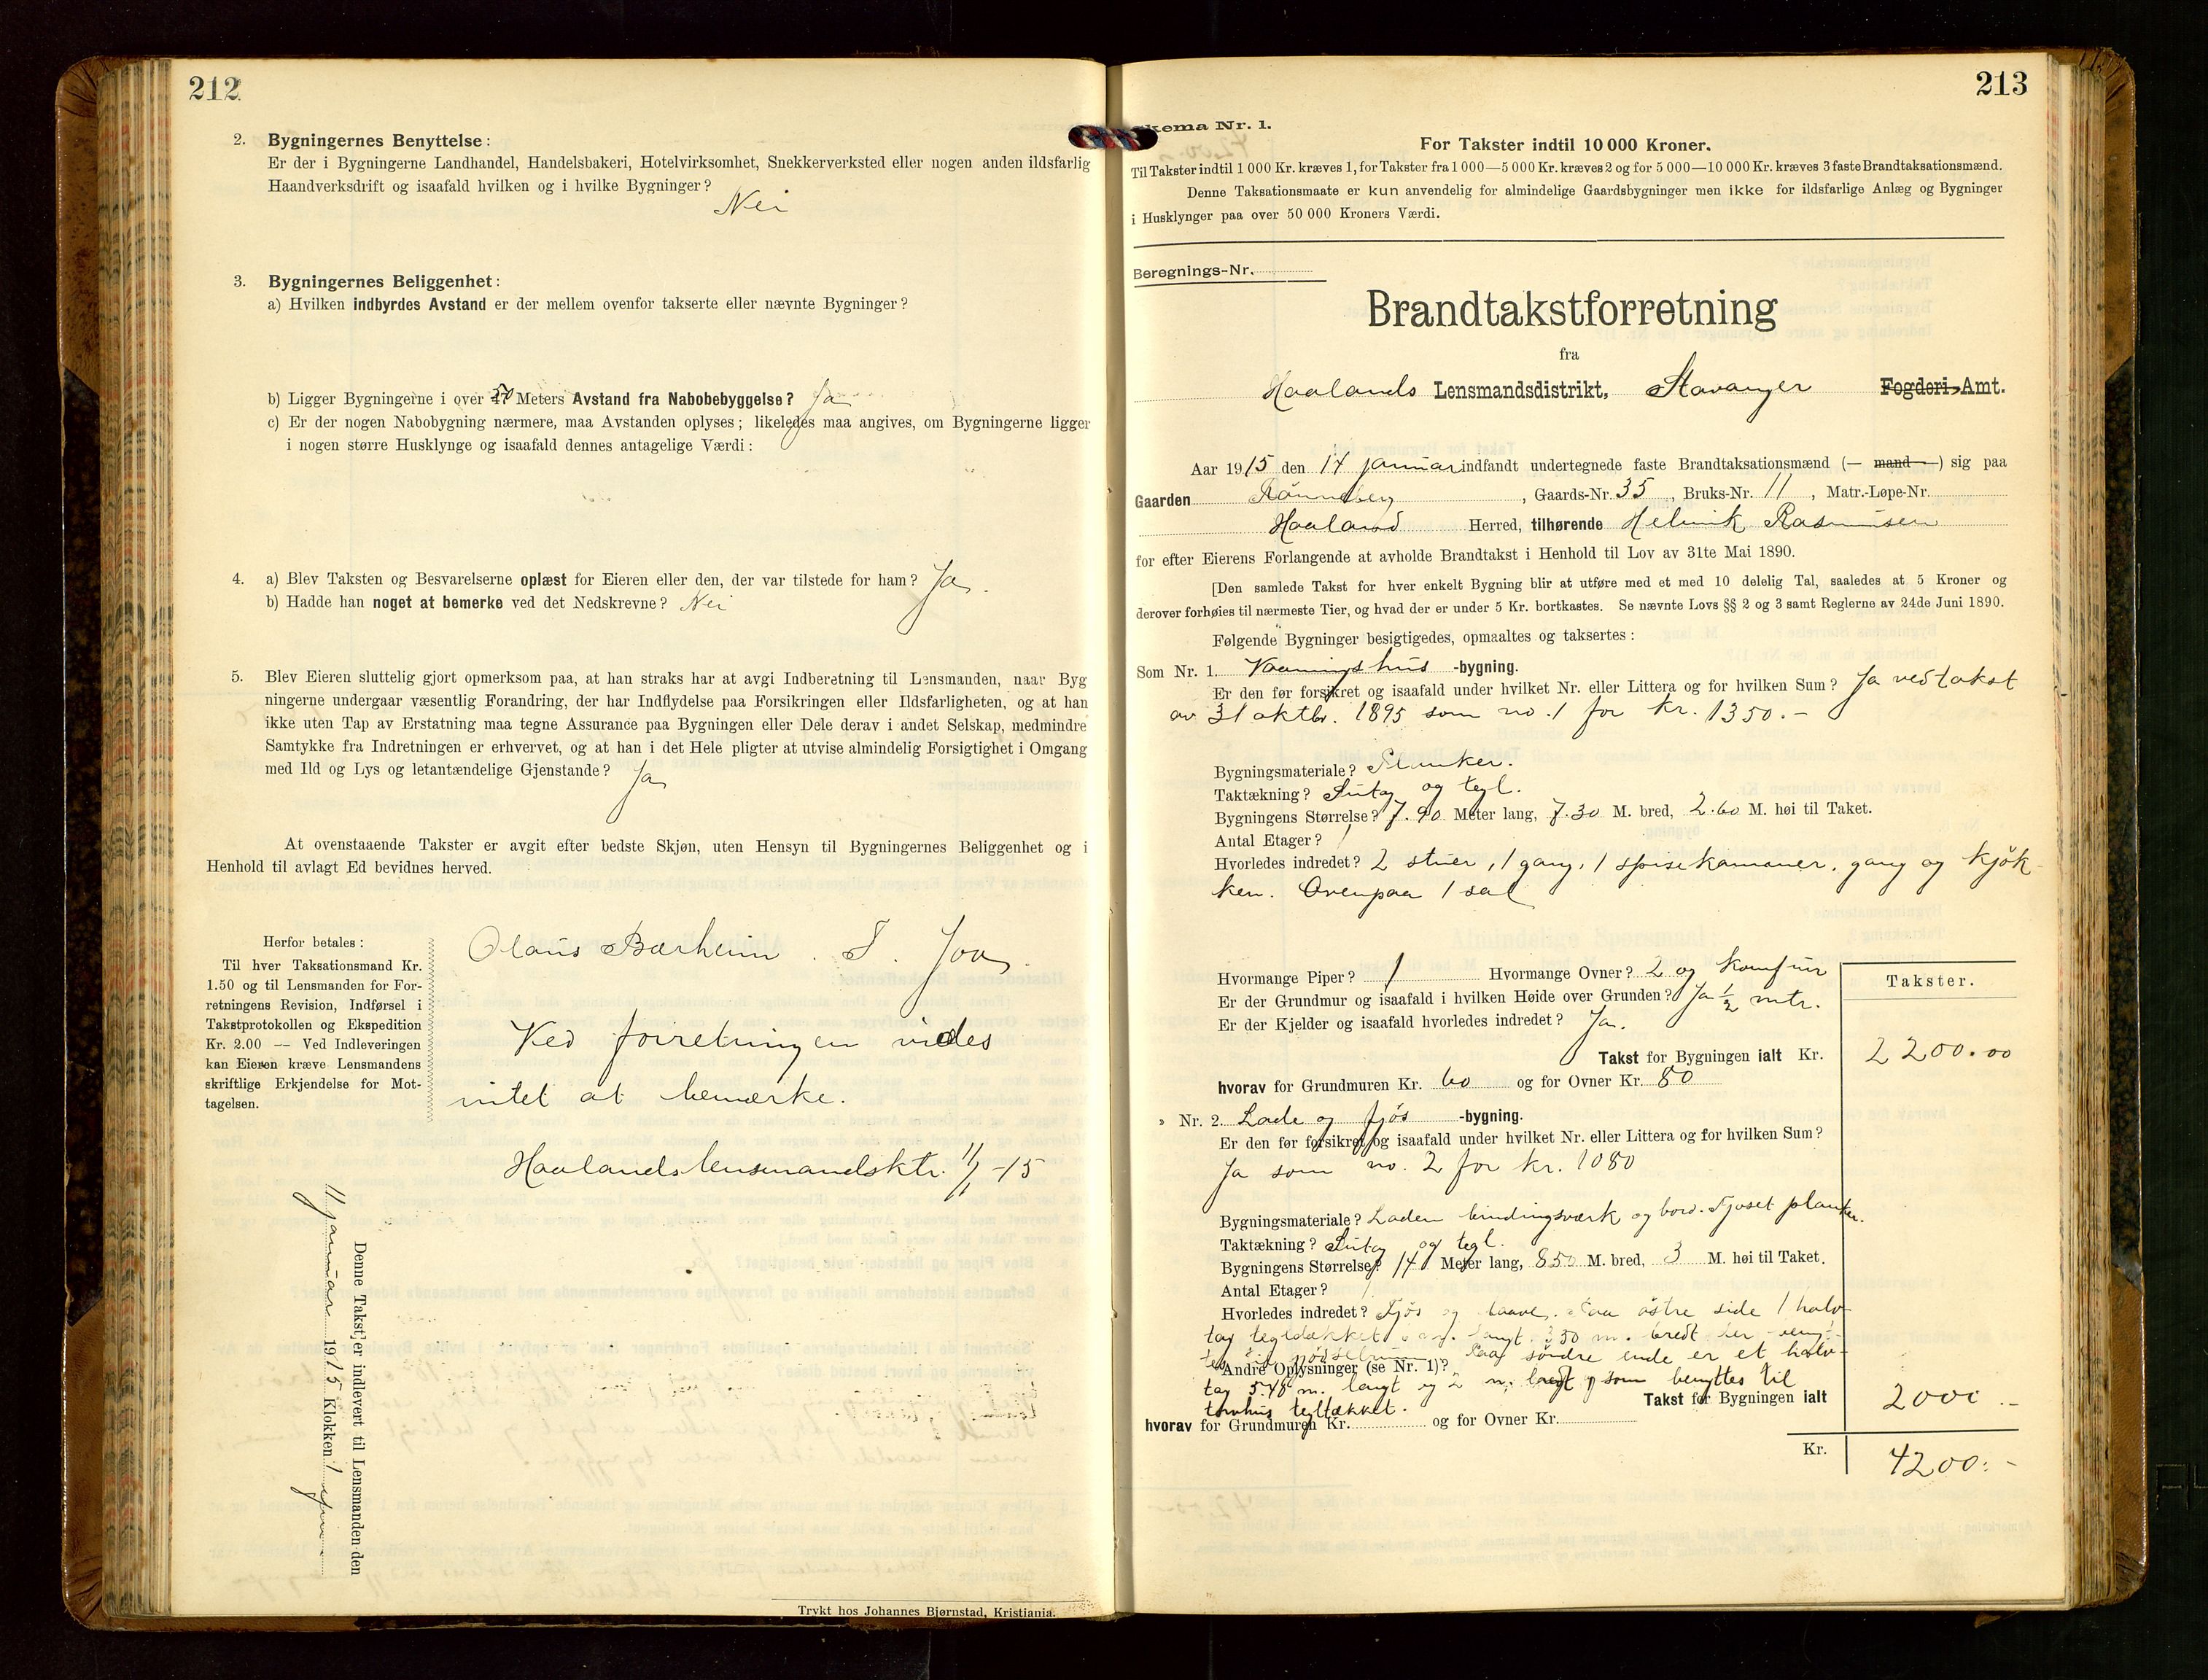 212
2. Bygningernes Benyttelse:
Er der i Bygningerne Landhandel, Handelsbakeri, Hotelvirksomhet, Snekkerverksted eller nogen anden ildsfarlig
Haandverksdrift og isaafald hvilken og i hvilke Bygninger?
Nei
3. Bygningernes Beliggenhet:
a) Hvilken indbyrdes Avstand er der mellem ovenfor takserte eller nævnte Bygninger?
b) Ligger Bygningerne i over 50 Meters Avstand fra Nabobebyggelse? Ja
c) Er der nogen Nabobygning nærmere, maa Avstanden oplyses; likeledes maa angives, om Bygningerne ligger
i nogen større Husklynge og isaafald dennes antagelige Værdi:
4. a) Blev Taksten og Besvarelserne oplæst for Eieren eller den, der var tilstede for ham? Ja.
b) Hadde han noget at bemerke ved det Nedskrevne? Nei
5. Blev Eieren sluttelig gjort opmerksom paa, at han straks har at avgi Indberetning til Lensmanden, naar Byg
ningerne undergaar væsentlig Forandring, der har Indflydelse paa Forsikringen eller Ildsfarligheten, og at han
ikke uten Tap av Erstatning maa tegne Assurance paa Bygningen eller Dele derav i andet Selskap, medmindre
Samtykke fra Indretningen er erhvervet, og at han i det Hele pligter at utvise almindelig Forsigtighet i Omgang
med Ild og Lys og letantændelige Gjenstande? Ja
At ovenstaaende Takster er avgit efter bedste Skjøn, uten Hensyn til Bygningernes Beliggenhet og i
Henhold til avlagt Ed bevidnes herved.
Herfor betales:
Til hver Taksationsmand Kr.
1.50 og til Lensmanden for For-
retningens Revision, Indførsel i
Takstprotokollen og Ekspedition
Kr. 2.00 — Ved Indleveringen
kan Eieren kræve Lensmandens
skriftlige Erkjendelse for Mot-
tagelsen.
Olaus Bærheim. T. Joa.
Ved forretningen vides
intet at bemærke.
Haalands lensmandsktr. 11/1 -15
Denne Takst er indlevert til Lensmanden den
11 januar 1915 Klokken 1 efm
Trykt hos Johannes Bjørnstad, Kristiania.
213
Skema Nr. 1.
For Takster indtil 10 000 Kroner.
Til Takster indtil 1 000 Kr. kræves 1, for Takster fra 1 000—5 000 Kr. kræves 2 og for 5 000—10 000 Kr. kræves 3 faste Brandtaksationsmænd.
Denne Taksationsmaate er kun anvendelig for almindelige Gaardsbygninger men ikke for ildsfarlige Anlæg og Bygninger
i Husklynger paa over 50 000 Kroners Værdi.
Beregnings-Nr.
Brandtakstforretning
fra
Haalands Lensmandsdistrikt, Stavanger Fogderi, Amt.
Aar 1915 den 14 januar indfandt undertegnede faste Brandtaksationsmænd (— mand —) sig paa
Gaarden Rönneberg, Gaards-Nr. 35, Bruks-Nr. 11, Matr.-Løpe-Nr.
Haaland Herred, tilhørende Helmik Rasmusen
for efter Eierens Forlangende at avholde Brandtakst i Henhold til Lov av 31te Mai 1890.
[Den samlede Takst for hver enkelt Bygning blir at utføre med et med 10 delelig Tal, saaledes at 5 Kroner og
derover forhøies til nærmeste Tier, og hvad der er under 5 Kr. bortkastes. Se nævnte Lovs §§ 2 og 3 samt Reglerne av 24de Juni 1890.
Følgende Bygninger besigtigedes, opmaaltes og taksertes:
Som Nr. 1. Vaaningshus -bygning.
Er den før forsikret og isaafald under hvilket Nr. eller Littera og for hvilken Sum? Ja ved takst
av 31 oktbr. 1895 som no. 1 for kr. 1350.-
Bygningsmateriale? Planker.
Taktækning? Sutag og tegl.
Bygningens Størrelse? 7.90 Meter lang, 7.30 M. bred, 2.60 M. høi til Taket.
Antal Etager? 1
Hvorledes indredet? 2 stuer, 1 gang, 1 spisekammer, gang og kjök-
ken. Ovenpaa 1 sal
Hvormange Piper? 1 Hvormange Ovner? 2 og komfur
Er der Grundmur og isaafald i hvilken Høide over Grunden? Ja ½ mtr.
Er der Kjelder og isaafald hvorledes indredet? Ja.
Takster.
Takst for Bygningen ialt Kr. 2200.00
hvorav for Grundmuren Kr. 60 og for Ovner Kr. 80
» Nr. 2. Lade og fjös -bygning.
Er den før forsikret og isaafald under hvilket Nr. eller Littera og for hvilken Sum?
Ja som no. 2 for kr. 1080
Bygningsmateriale? Laden bindingsværk og bord. Fjøset planker.
Taktækning? Sutag og tegl.
Bygningens Størrelse? 14 Meter lang, 850 M. bred, 3 M. høi til Taket.
Antal Etager? 1
Hvorledes indredet? Fjös og laave. Paa östre side 1 halv-
tag tegltækket langt 350 m. bredt der
Paa söndre ende er et halv-
Andre Oplysninger (se Nr. 1)?
tag 5.48 m. langt og 2 m. bredt som benyttes til
torvhus tegltækket.
Takst for Bygningen ialt 2000.-
hvorav for Grundmuren Kr. og for Ovner Kr.
Kr. 4200:-